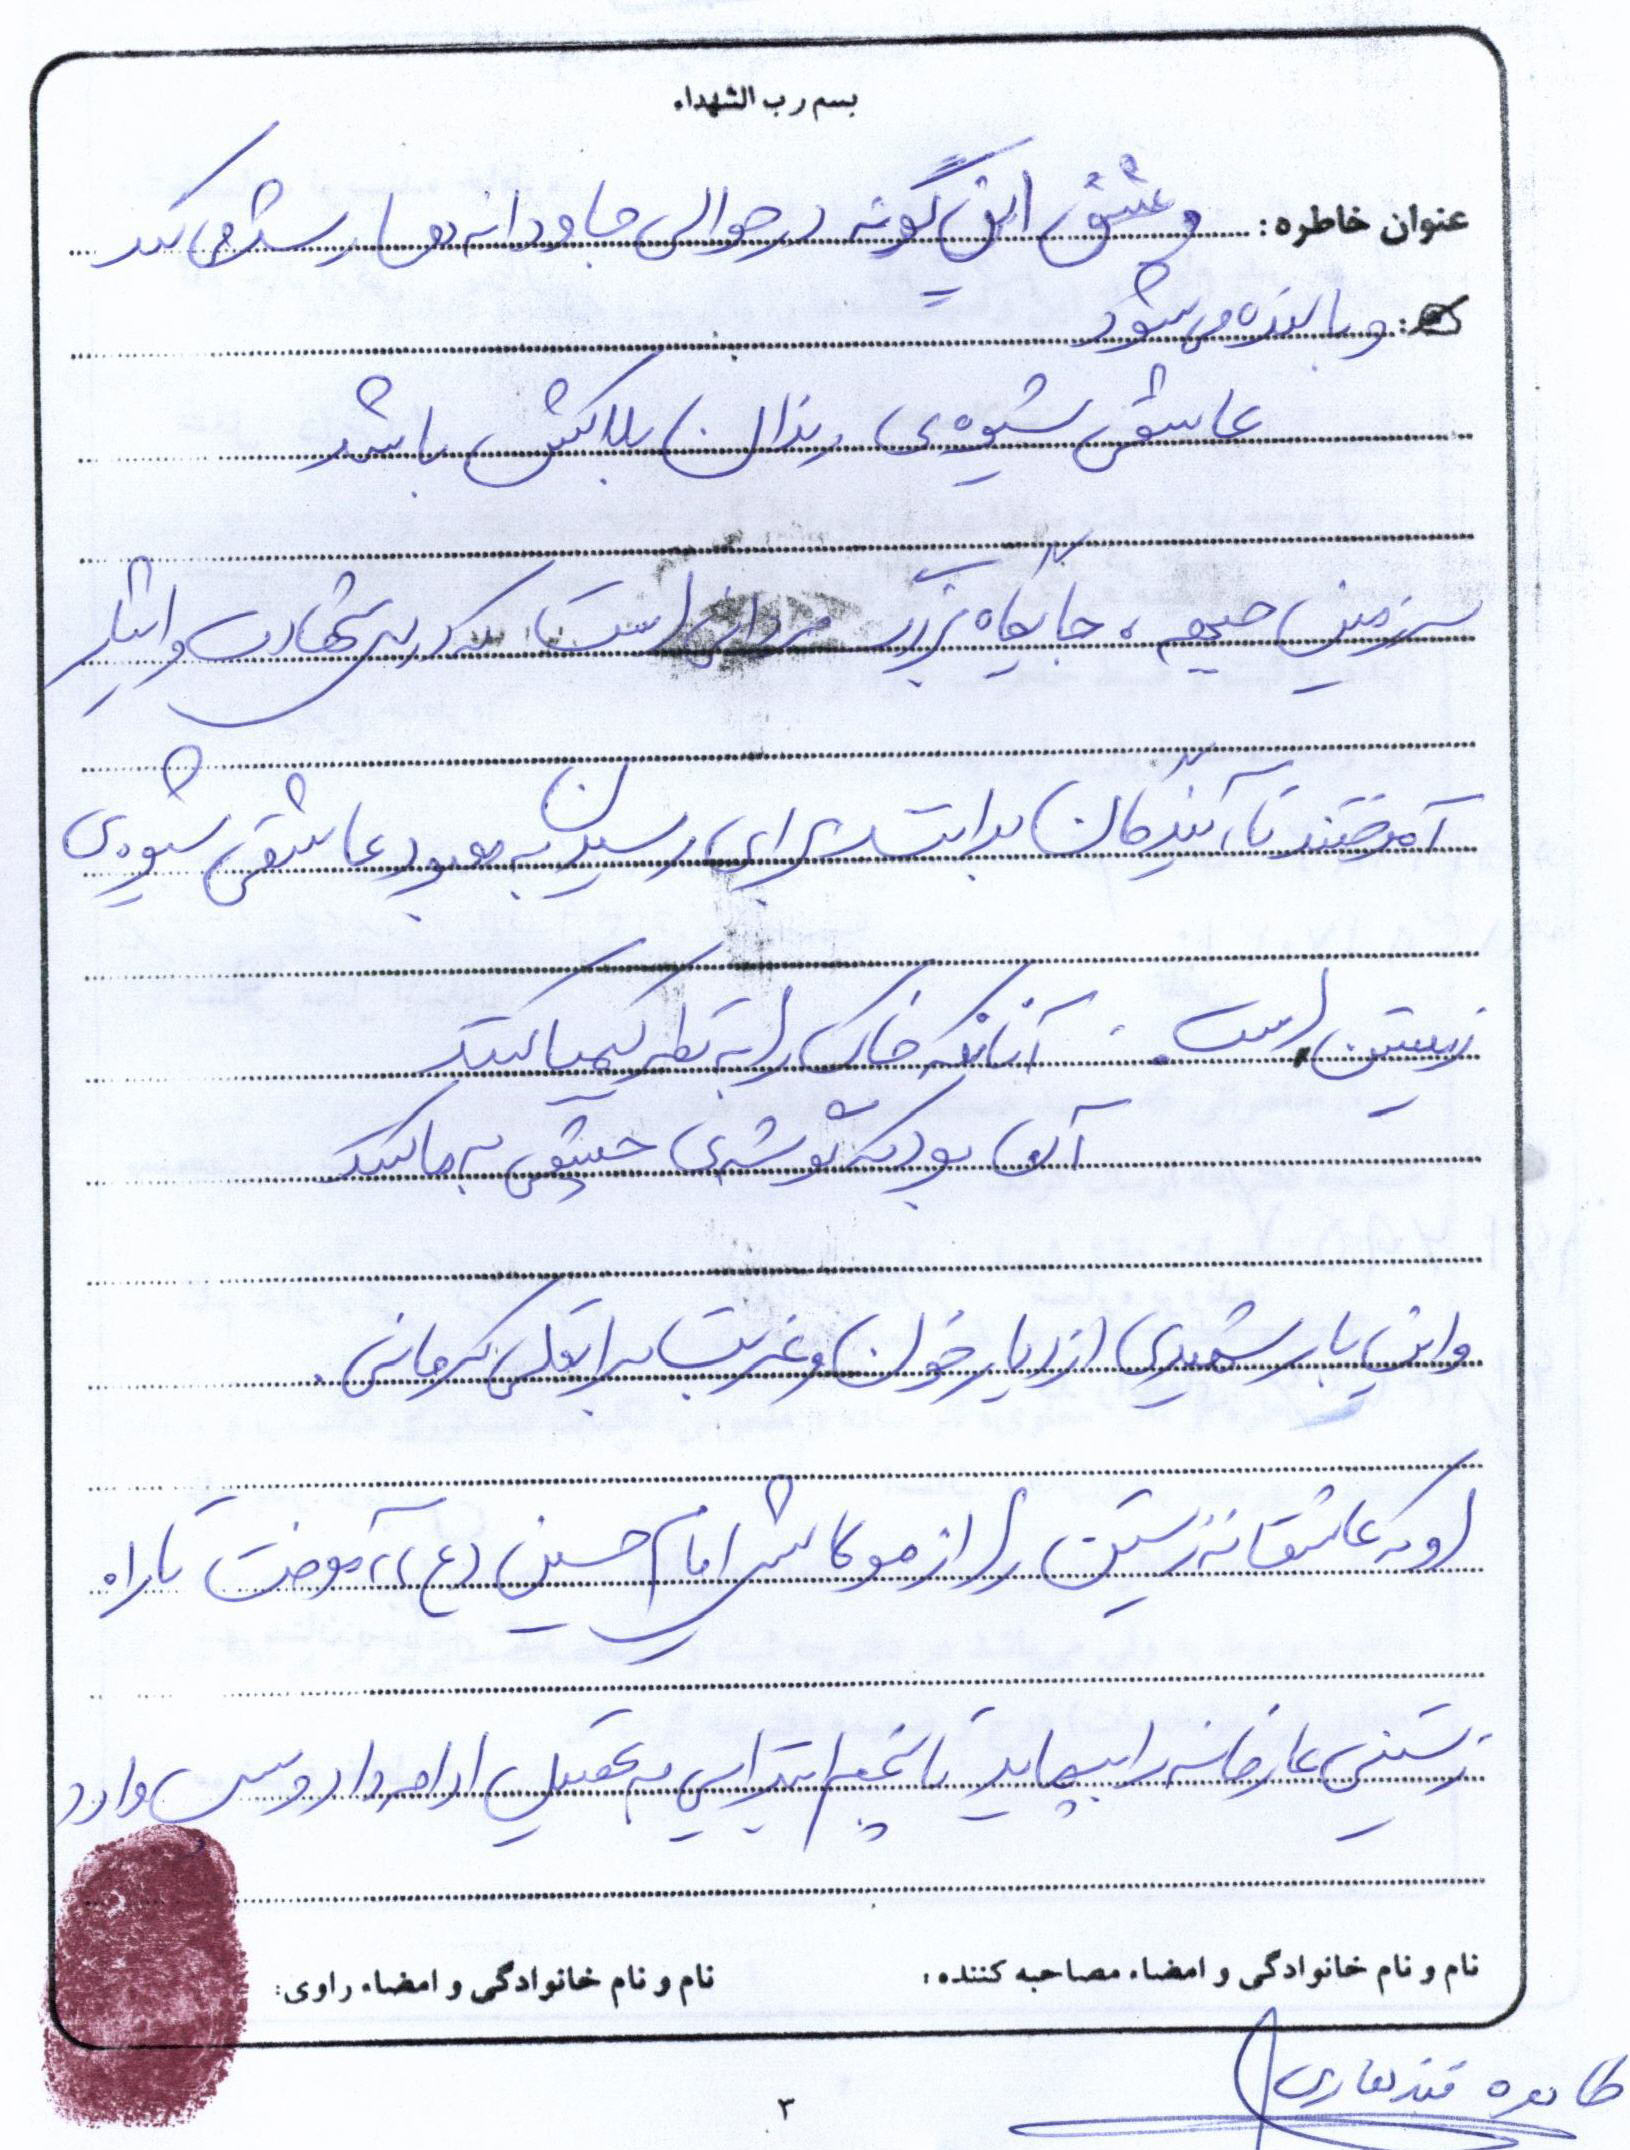 بسم رب الشهداء
عنوان خاطره: و عشق این گونه در حوالی جاودانه ها رشد می کند
: و بالنده می شود
عاشقی شیوه ی رندان بلاکش باشد
سرزمین جیم، جایگاه بزرگ مردانی است که درس شهادت و ایثار
آموختند تا آیندگان بدانند برای رسیدن به معبود عاشقی شیوه ی
زیستن است. آنانکه خاک را به نظر کیمیا کنند
آیا بود که گوشه ی چشمی به ما کنند
و این بار شهیدی از دیار خون و غربت براتعلی کرمانی.
او که عاشقانه زیستن را از مولایش امام حسین (ع) آموخت تا راه
زیستنی عارفانه را بپیماید تا پنجم ابتدایی به تحصیل ادامه داد و سپس وارد
نام و نام خانوادگی و امضاء مصاحبه کننده:
نام و نام خانوادگی و امضاء راوی:
طاهره قندهاری
۳